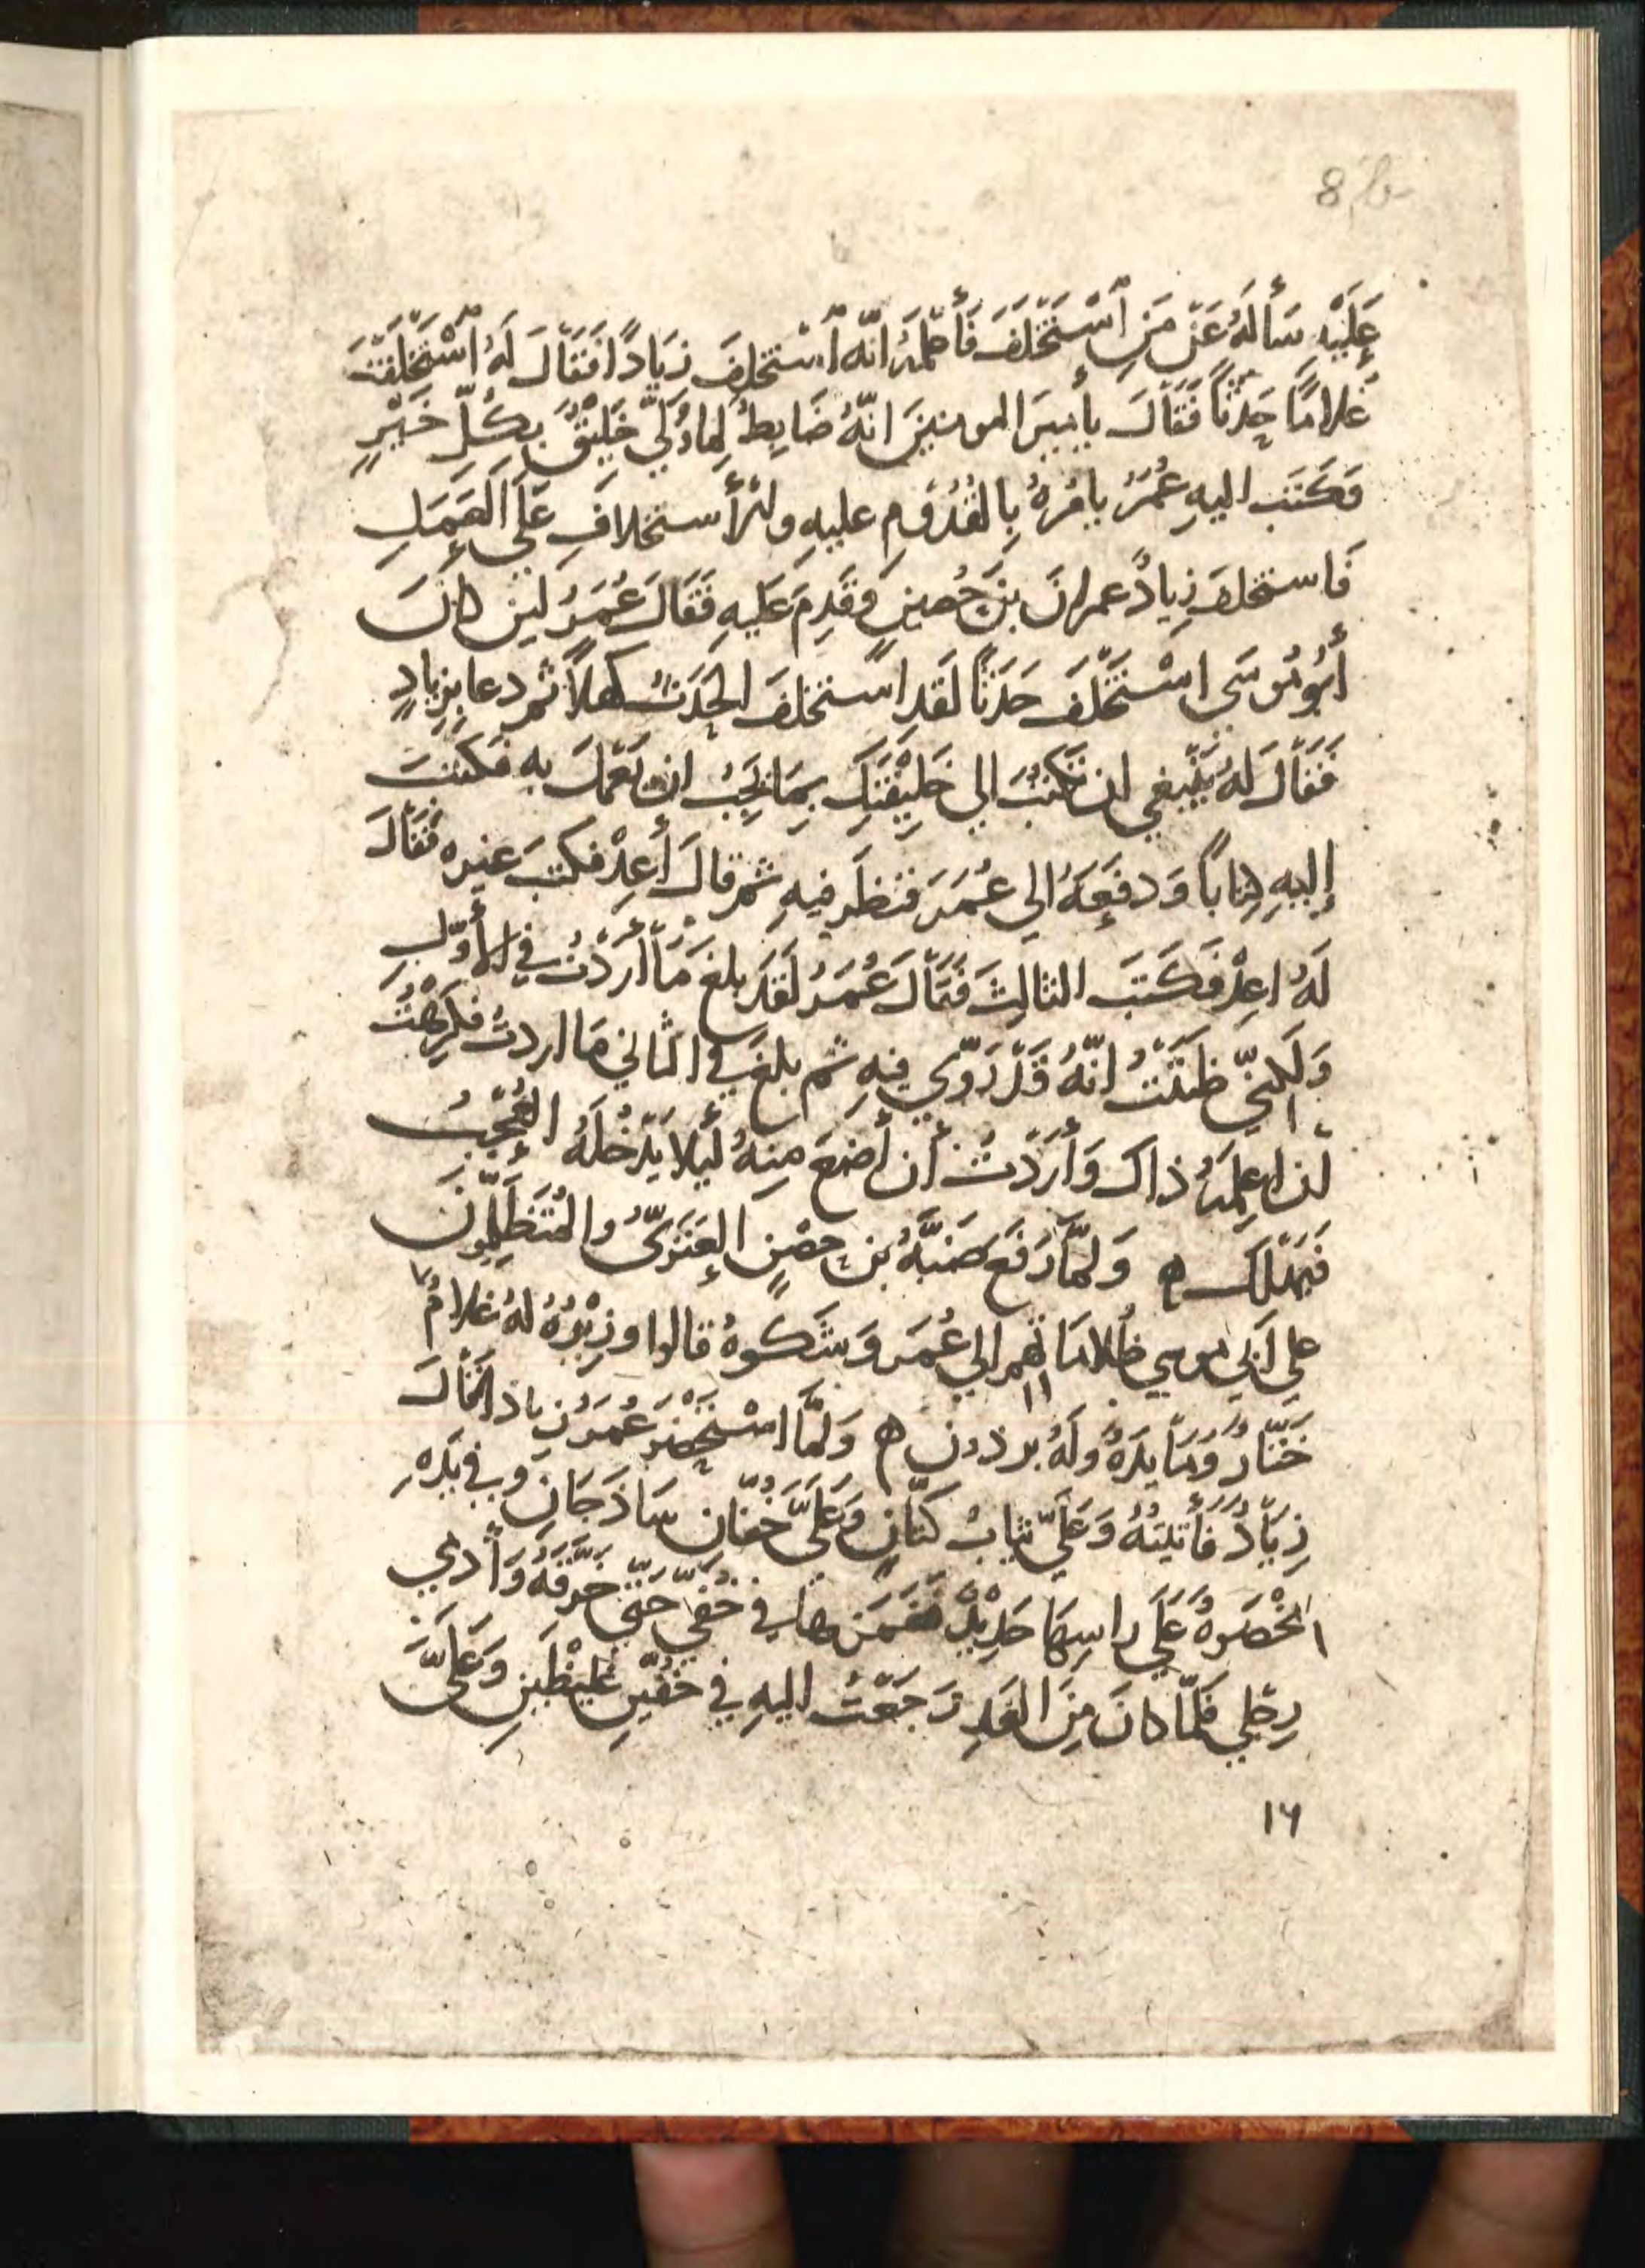 8
عَلَيْهِ سَأَلَهُ عَنْ مَنِ ٱسْتَخْلَفَ فَأَعْلَمَهُ انّه ٱسْتخلِفَ زِيَادًا فَقَالَ لَهُ ٱسْتَخْلَفْتَ
غُلامًا حَدَثًا فَقَالَ يأميرَ المومنينَ انّهُ ضَابِطُ لِمَا وُلِّيَ خَلِيْقٌ بِكُلِّ خَيْرٍ
فكَتَب اليهِ عُمَرُ يامُرهُ بِالقُدُوْمِ عليهِ و استخلافِ عَلَى العَمَلِ
فَاستخلفَ زِيادٌ عمرانَ بنَ حُصينٍ وقَدِمَ عَليهِ فَقَالَ عُمَرُ لين كانَ
أبُومُوسَى اسْتَخْلَفَ حَدَثًا لَقَدِ استخلفَ الحَدَثُ كَهلاً ثم دعا بِزيادٍ
فَقَالَ لَهُ يَنْبغي ان تَكتُبَ الي خَلِيْفَتِكَ بِمَا يَجِبُ ان يَعْمَلَ بِهِ فكَتَبَ
إليهِ كِتاباً وَدفعَهُ الي عُمَرَ فنظَر فيهِ ثم قالَ أَعِدْ فكتبَ غيره فَقَالَ
لَهُ اعِدْ فَكَتَبَ الثالِثَ فَقَالَ عُمَرُ لَقَد بلغَ مَا أَرَدْتُ في الأَوّلِ
وَلكِنّي ظَنَنْتُ انّهُ قَدْ رَوَّي فيهِ ثم بلغَ في الثاني مَا اردتُ فكَرِهْتُ
ان اعلِمَهُ ذاك وَأَرَدْتُ أن أضَعَ مِنهُ لَيلا يَدْخُلَهُ العُجْبُ
فيَهْلَكَ ه وَلمَّا رَفَعَ ضَبَّةُ بن حصْنٍ العَنَزِيُّ والمُتَظَلِّمُونَ
علي أَبي موسي ظُلاماتهم الي عُمَرَ وَشَكَوهُ قالوا وزِيْرُهُ لهُ غلامٌ
خَتّارٌ وَمَايِدَةٌ ولَهُ برذون ه وَلمَّا اسْتحضر عُمَرُ زيادا قالَ
زِيَادٌ فَأَتَيتُهُ وَعَلَيَّ ثيابُ كَتّانٍ وَعَلَيَّ خُفّان سَاذَجَان وفي يَدِهِ
مِخْصَرةٌ عَلَى راسِهَا حَدِيْدٌ فغمَزَ بها في خُفّي حَتّي خَرَّقَهُ وَأَدمي
رِجلي فَلمّا كانَ مِنَ الغَدِ رَجَعْتُ اليهِ في خُفّينِ غليظَينِ وَعَلَيَّ
١٦